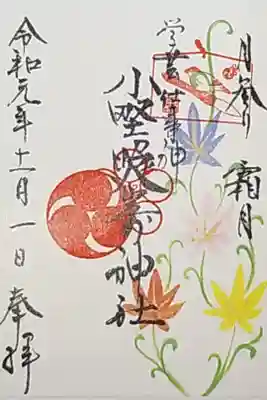 月参り 霜月
学芸仕事神
小野照崎神社
令和元年十一月一日 奉拝